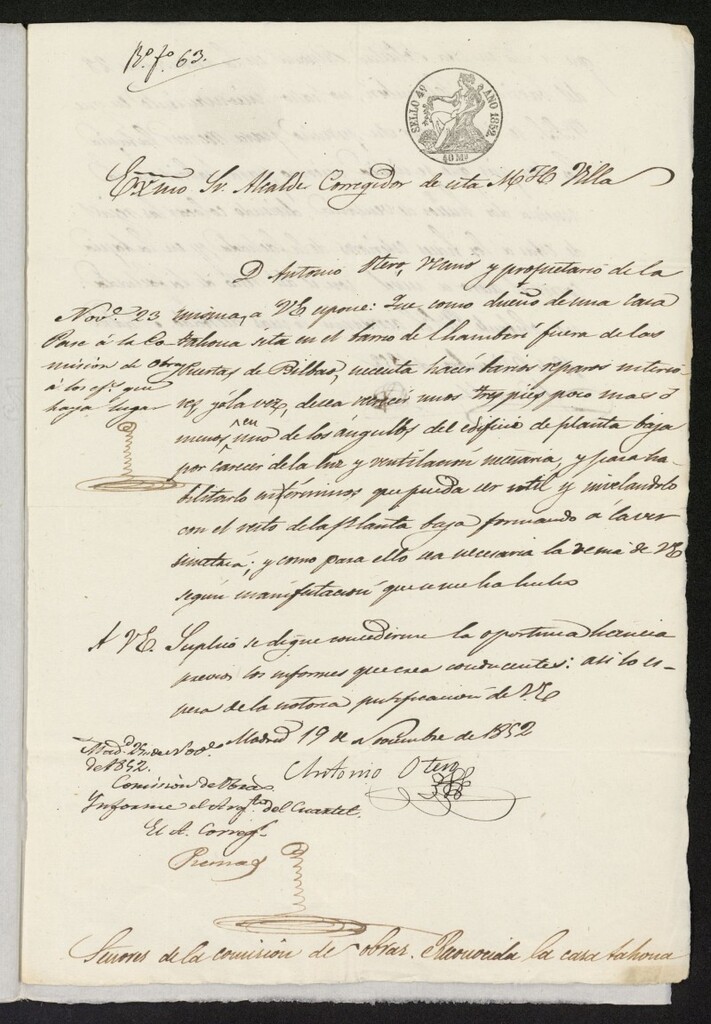 Rº. fº. 63.
SELLO 4º AÑO 1852.
40 Mˢ
Exmo Sr. Alcalde Corregidor de esta M. H. Villa
D. Antonio Otero, vecino y propietario de la
misma, a V.E. espone: Que como dueño de una casa
tahona sita en el barrio de Chamberí fuera de las
Puertas de Bilbao, necesita hacer barios reparos interio-
res, y á la vez, desea unos tres pies poco mas ó
menos, en uno de los ángulos del edificio de planta baja
por carecer de la luz y ventilacion necesaria, y para ha-
bilitarlo en términos que pueda ser util, y nivelandolo
con el resto de la Planta baja formando á la vez
simetría; y como para ello sea necesaria la venia de V.E.
segun manifestacion que se me ha hecho
A V.E. Suplico se digne concedirme la oportuna licencia
previos los informes que crea conducentes: asi lo es-
pera de la notoria justificacion de V.E.
Madrid 19 de Noviembre de 1852
Antonio Otero
Novᵉ. 23
Pase á la Co-
mision de Obras
á los efˢ. que
haya lugar
Madᵈ 25 de Novᵉ.
de 1852.
Comision de Obras
Informe el Arqᵗᵒ del Cuartel.
El A. Corregʳ.
Señores de la comisión de obras. Reconocida la casa tahona